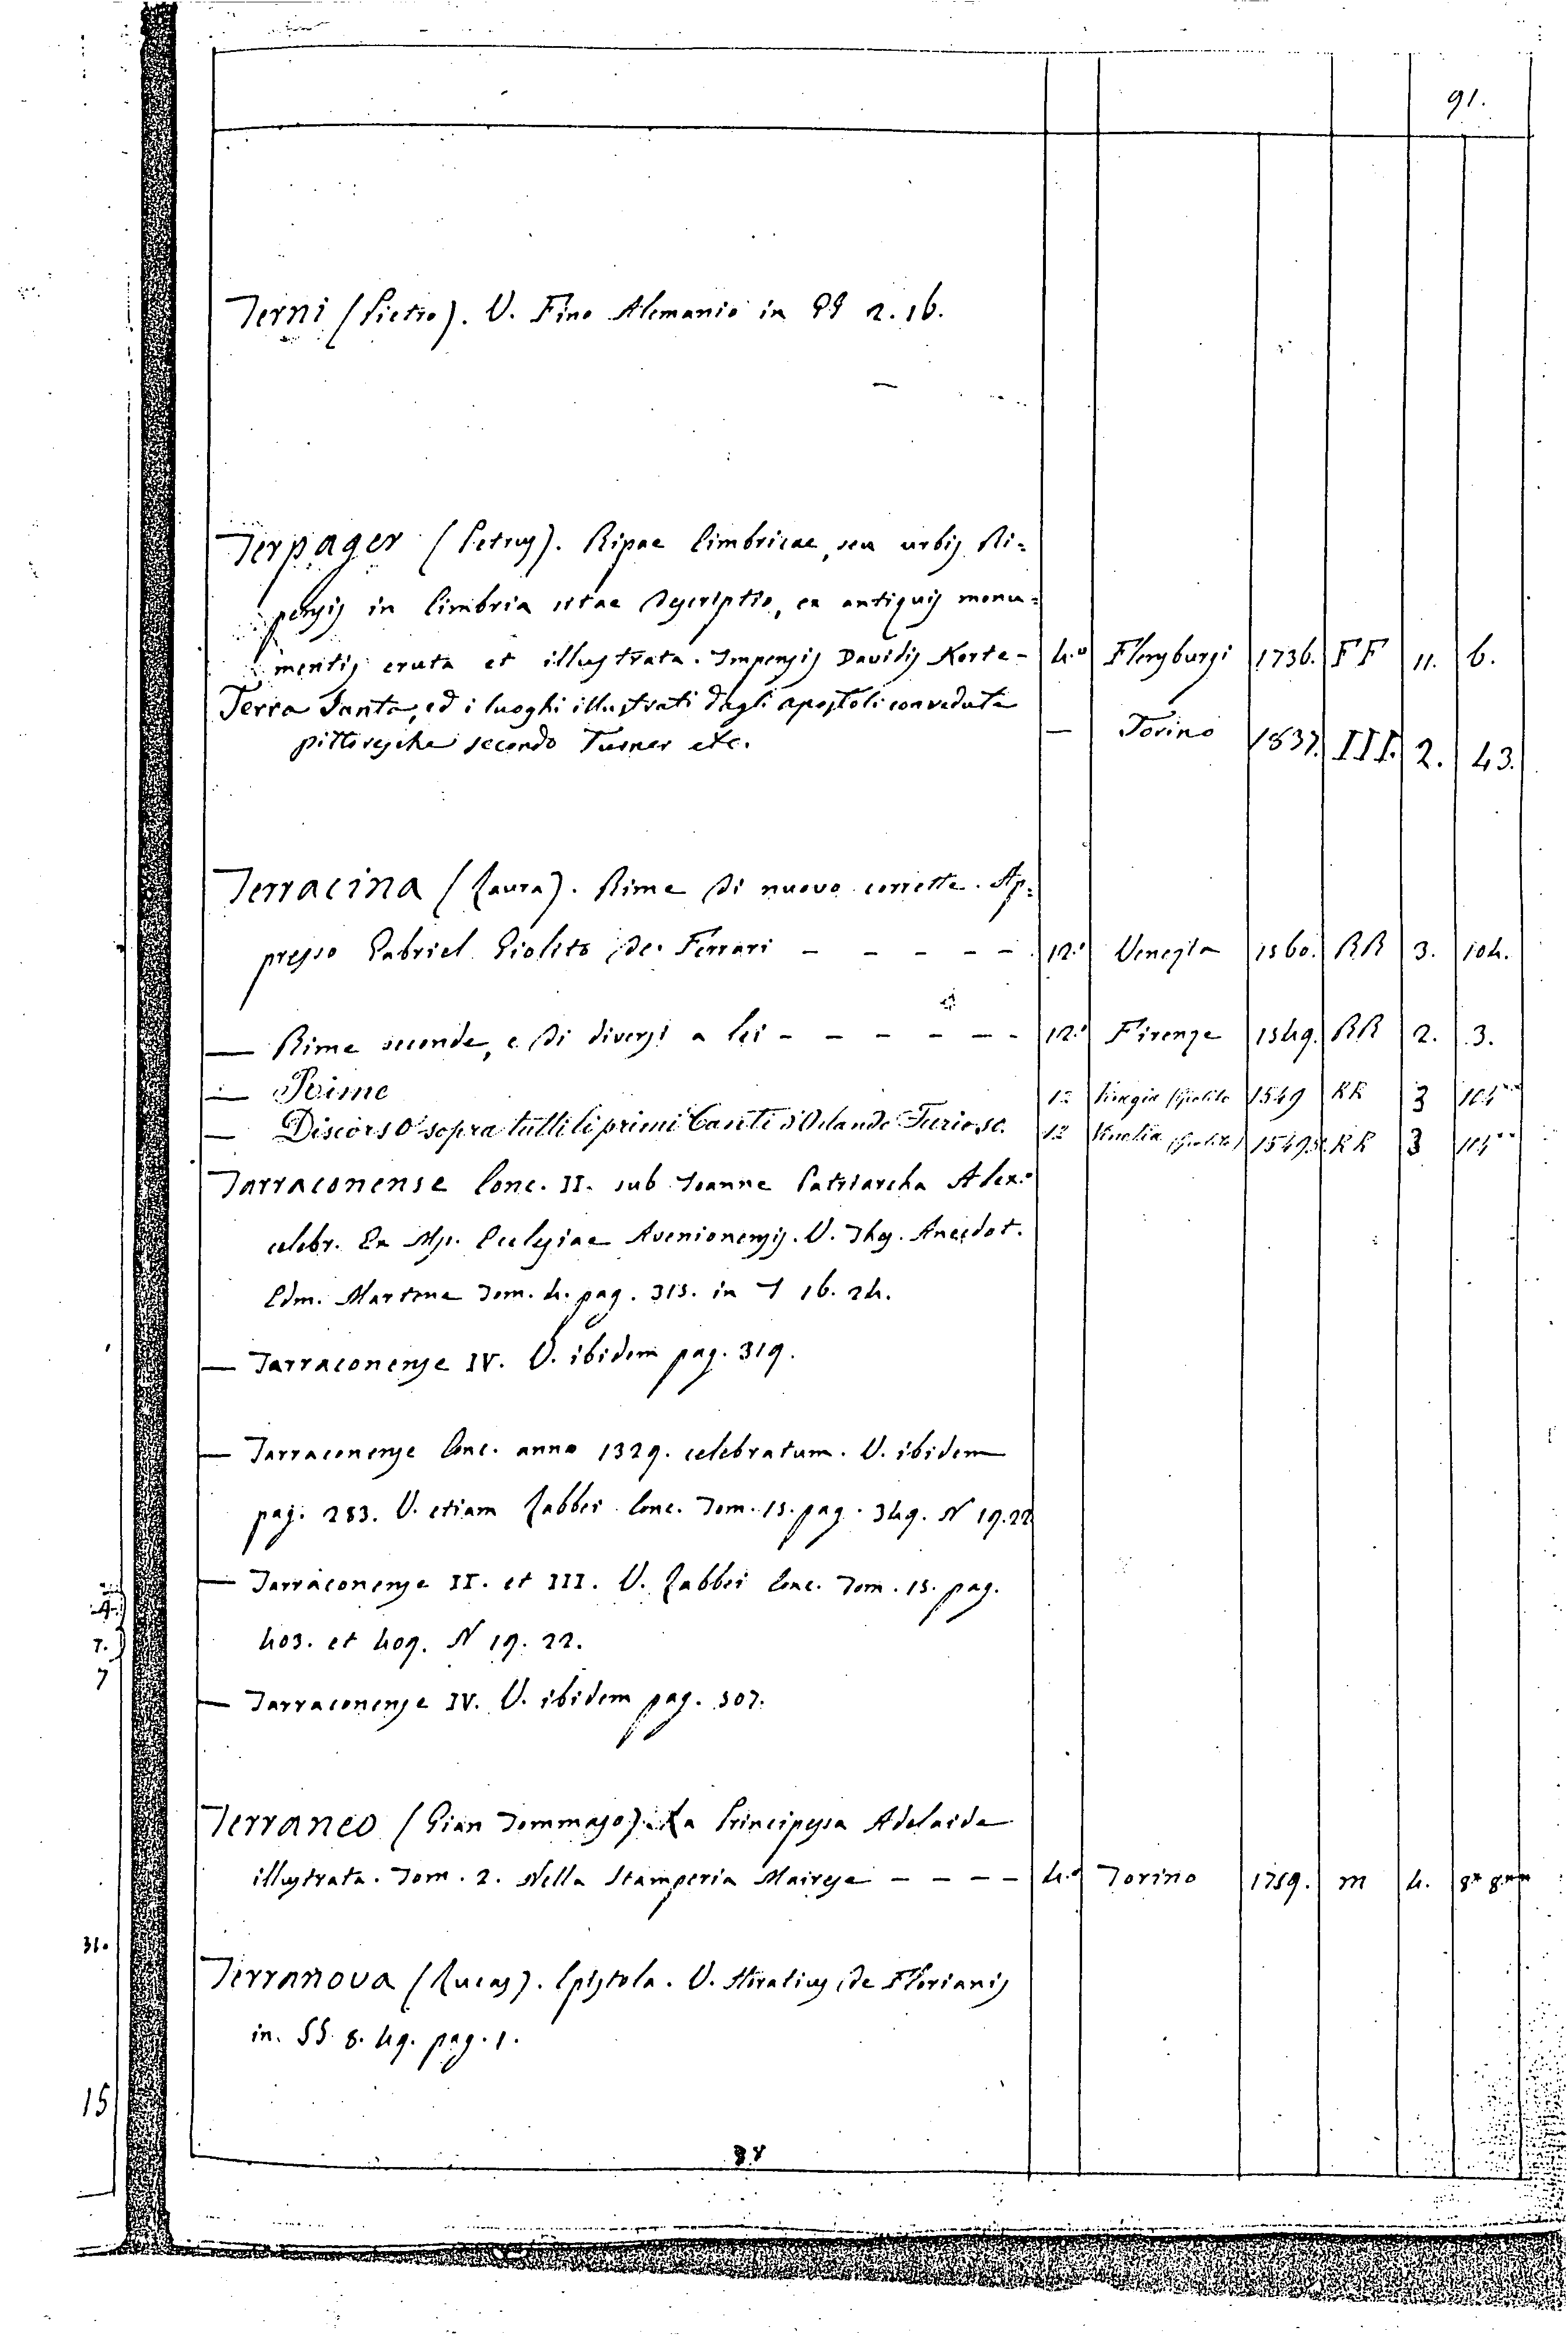 91.
Terni (Pietro). V. Fino Alemanio in QQ 2. 16.
Terpager (Petrus). Ripae Cimbricae, seu urbis Ri=
pensis in Cimbria sitae descriptio, ex antiquis monu=
mentis eruta et illustrata. Impensis Davidis Korte - 4.º Flensburgi 1736. FF 11. 6.
Terra Santa, ed i luoghi illustrati dagli apostoli con vedute
pittoresche secondo Turner etc. — Torino 1837. III. 2. 43.
Terracina (Laura). Rime di nuovo corrette. Ap=
presso Gabriel Giolito de' Ferrari - - - - - 12.º Venezia 1560. RR 3. 104.
— Rime seconde, e di diversi a lei - - - - - - 12.º Firenze 1549. RR 2. 3.
— Rime 12 Venezia (Giolito 1549 RR 3 104**
— Discorso sopra tutti li primi Canti d'Orlando Furioso. 12 (Giolito) 1549 RR 3
Tarraconense Conc. II. sub Joanne Patriarcha Alex.º
celebr. Ex Ms. Ecclesiae Avenionensis. V. Thes. Anecdot.
Edm. Martene Tom. 4. pag. 315. in T 16. 24.
— Tarraconense IV. V. ibidem pag. 319.
— Tarraconense Conc. anno 1329. celebratum. V. ibidem
pag. 283. V. etiam Labbei Conc. Tom. 15. pag. 349. N 19. 22
— Tarraconense II. et III. V. Labbei Conc. Tom. 15. pag.
403. et 409. N 19. 22.
— Tarraconense IV. V. ibidem pag. 507.
Terraneo (Gian Tommaso). La Principessa Adelaide
illustrata. Tom. 2. Nella Stamperia Mairesse - - - - 4.º Torino 1759. m 4. 8* 8**
Terranova (Lucas). Epistola. V. Horatius de Florianis
in SS. 8. 49. pag. 1.
31.
15